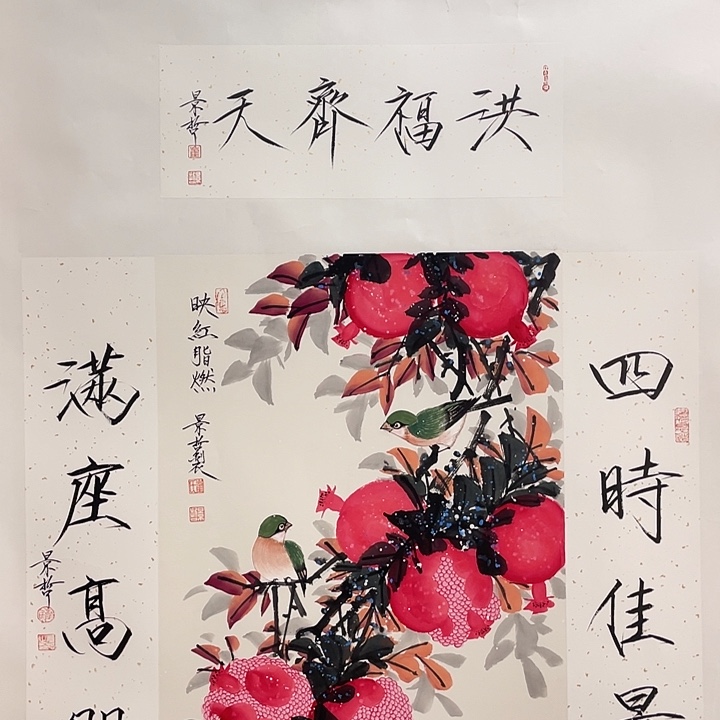 洪福齊天
景哲
四時佳景
映紅脂燃
景哲製
滿座高朋
景哲